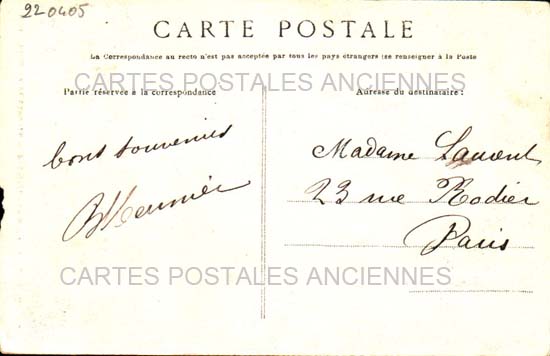 220405
CARTE POSTALE
La Correspondance au recto n'est pas acceptée par tous les pays étrangers (se renseigner à la Poste
CARTES POSTALES ANCIENNES
Partie réservée à la correspondance
Adresse du destinataire :
bons souvenirs
Madame Laurent
23 rue Rodier
Paris
CARTES POSTALES ANCIENNES